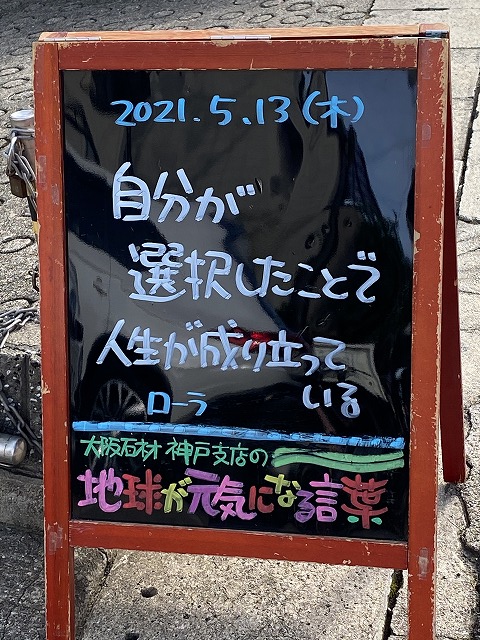 2021.5.13(木)
自分が
選択したことで
人生が成り立って
いる
ローラ
大阪石材 神戸支店の
地球が元気になる言葉